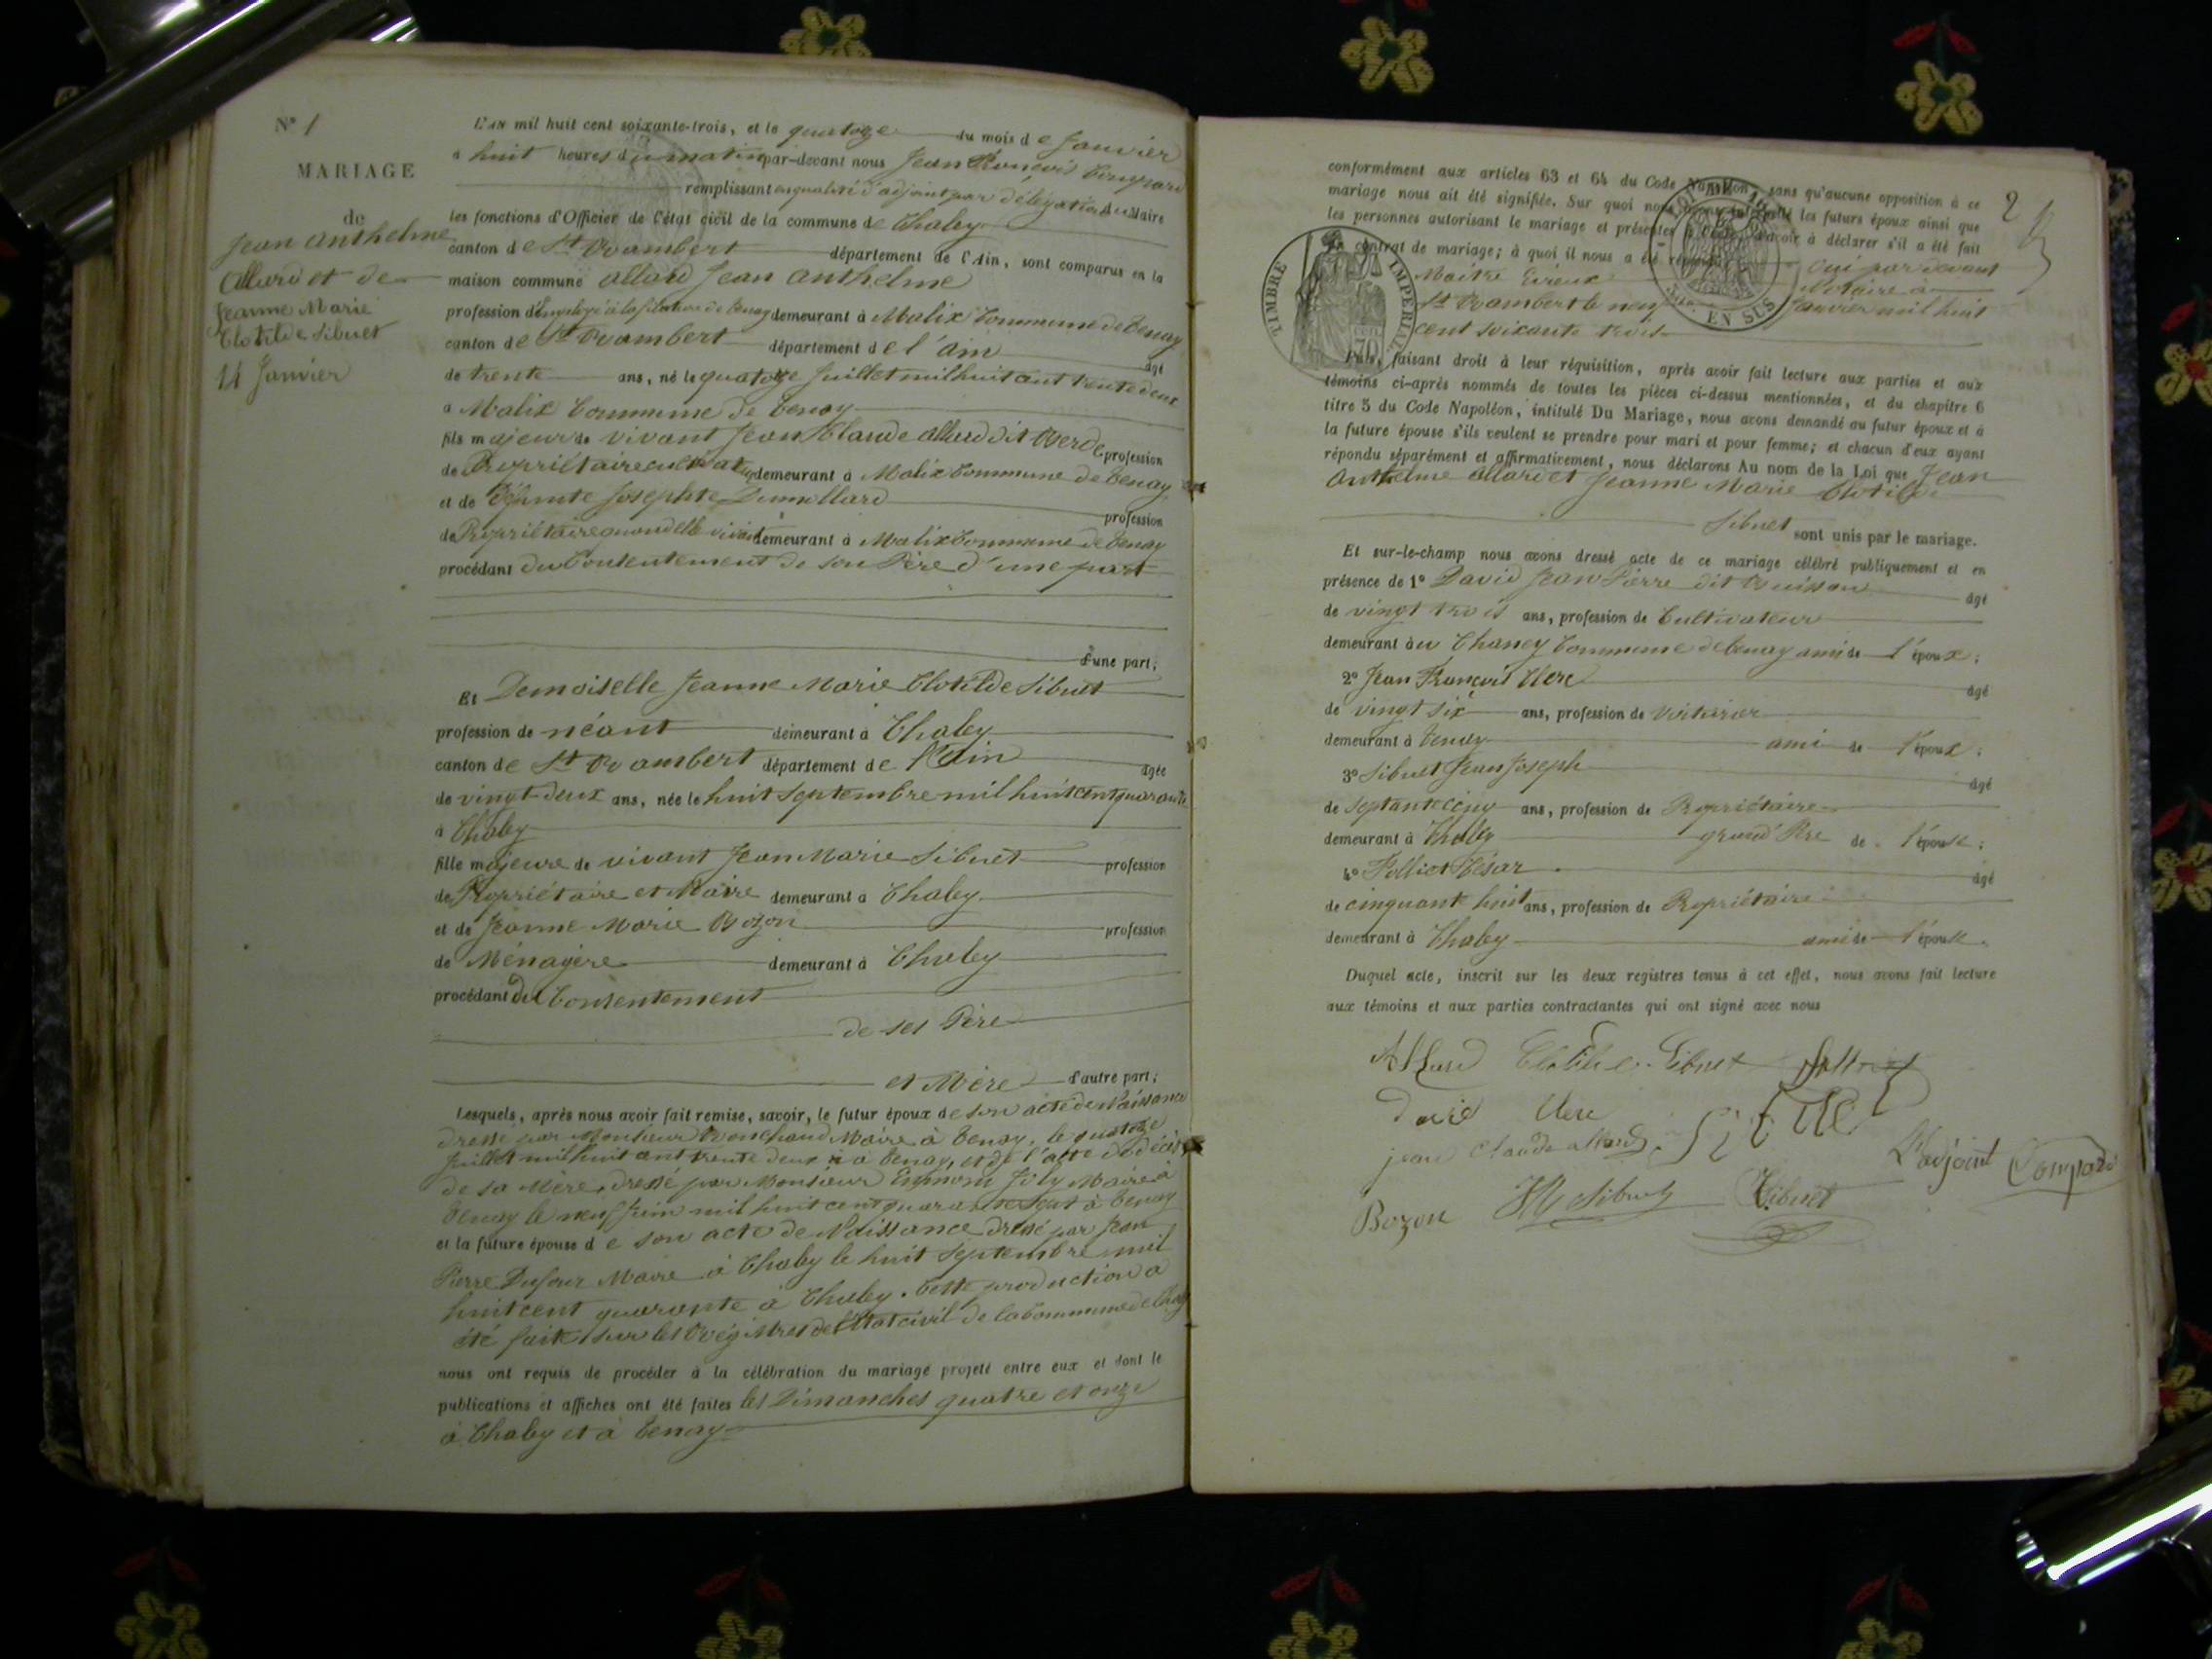 N° 1
MARIAGE
de
Jean Anthelme
Allard et de
Jeanne Marie
Clotilde Sibuet
14 Janvier
L'an mil huit cent soixante-trois, et le quatorze du mois de Janvier
à huit heures du matin par-devant nous Jean François Compard
remplissant en qualité d'adjoint par délégation du Maire
les fonctions d'Officier de l'état civil de la commune de Chaley
canton de St Rambert département de l'Ain, sont comparus en la
maison commune Allard Jean Anthelme
profession d'Employé à la filature de Tenay demeurant à Malix Commune de Tenay
canton de St Rambert département de l'ain âgé
de trente ans, né le quatorze Juillet mil huit cent trente deux
à Malix Commune de Tenay
fils majeur de vivant Jean Claude Allard dit Verd profession
de Propriétaire cultivateur demeurant à Malix Commune de Tenay
et de Défunte Josephte Dumollard profession
de Propriétaire quand elle vivait demeurant à Malix Commune de Tenay
procédant du Contentement de son Père d'une part
d'une part;
Et Demoiselle Jeanne Marie Clotilde Sibuet
profession de néant demeurant à Chaley
canton de St Rambert département de l'Ain âgée
de vingt-deux ans, née le huit Septembre mil huit cent quarante
à Chaley
fille majeure de vivant Jean Marie Sibuet profession
de Propriétaire et Maire demeurant à Chaley
et de Jeanne Marie Bozon profession
de Ménagère demeurant à Chaley
procédant du Consentement
de ses Père
et Mère d'autre part;
Lesquels, après nous avoir fait remise, savoir, le futur époux de son acte de Naissance
dressé par Monsieur Maire à Tenay, le quatorze
Juillet mil huit cent trente deux à Tenay, et de l'acte de décès
de sa Mère, dressé par Monsieur Joly Maire à
Tenay le neuf Juin mil huit cent quarante sept à Tenay
et la future épouse de son acte de Naissance dressé par Jean
Pierre Dufour Maire à Chaley le huit Septembre mil
huit cent quarante à Chaley. Cette production a
été faite sur les Régistres de l'Etat civil de la Commune de Chaley
nous ont requis de procéder à la célébration du mariage projeté entre eux et dont le
publications et affiches ont été faites les Dimanches quatre et onze
à Chaley et à Tenay
2
conformément aux articles 63 et 64 du Code Napoléon, sans qu'aucune opposition à ce
mariage nous ait été signifiée. Sur quoi nous avons interpellé les futurs époux ainsi que
les personnes autorisant le mariage et présentes à déclarer s'il a été fait
un contrat de mariage; à quoi il nous a été répondu Oui par devant
Maitre Notaire à
St Rambert le neuf Janvier mil huit
cent soixante trois
TIMBRE IMPERIAL
70
EN SUS
Puis, faisant droit à leur réquisition, après avoir fait lecture aux parties et aux
témoins ci-après nommés de toutes les pièces ci-dessus mentionnées, et du chapitre 6
titre 5 du Code Napoléon, intitulé Du Mariage, nous avons demandé au futur époux et à
la future épouse s'ils veulent se prendre pour mari et pour femme; et chacun d'eux ayant
répondu séparément et affirmativement, nous déclarons Au nom de la Loi que Jean
Anthelme Allard et Jeanne Marie Clotilde
Sibuet sont unis par le mariage.
Et sur-le-champ nous avons dressé acte de ce mariage célébré publiquement et en
présence de 1° David Jean Pierre dit Buisson âgé
de vingt trois ans, profession de Cultivateur
demeurant au Chaney Commune de Tenay ami de l'époux;
2° Jean François Clerc âgé
de vingt six ans, profession de Voiturier
demeurant à Tenay ami de l'époux;
3° Sibuet Jean Joseph âgé
de septante cinq ans, profession de Propriétaire
demeurant à Chaley grand Père de l'épouse;
4° Folliet César âgé
de cinquante huit ans, profession de Propriétaire
demeurant à Chaley ami de l'épouse.
Duquel acte, inscrit sur les deux registres tenus à cet effet, nous avons fait lecture
aux témoins et aux parties contractantes qui ont signé avec nous
Allard Clotilde Sibuet Folliet
David Clerc
jean claude allard
L'adjoint Compard
Bozon Sibuet Sibuet